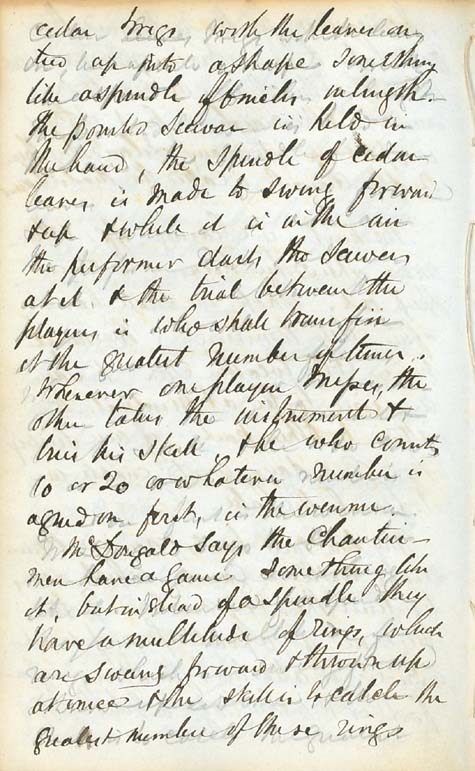 cedar twigs with the leaves on
tied up into a shape something
like a spindle 6 inches in length.
The pointed sewar is held in
the hand, the spindle of cedar
leaves is made to swing forward
& up & while it is in the air
the performer darts the sewers
at it. & the trial between the
players is who shall transfix
it the greatest number of times.
Whenever one player misses, the
other takes the instrument &
tries his skill, & he who counts
10 or 20 or whatever number is
agreed on first, is the winner.
McDougald says the Chantier
men have a game something like
it, but instead of a spindle they
have a multitude of rings, which
are swung forward & thrown up
at once & the skill is to catch the
greatest number of these rings